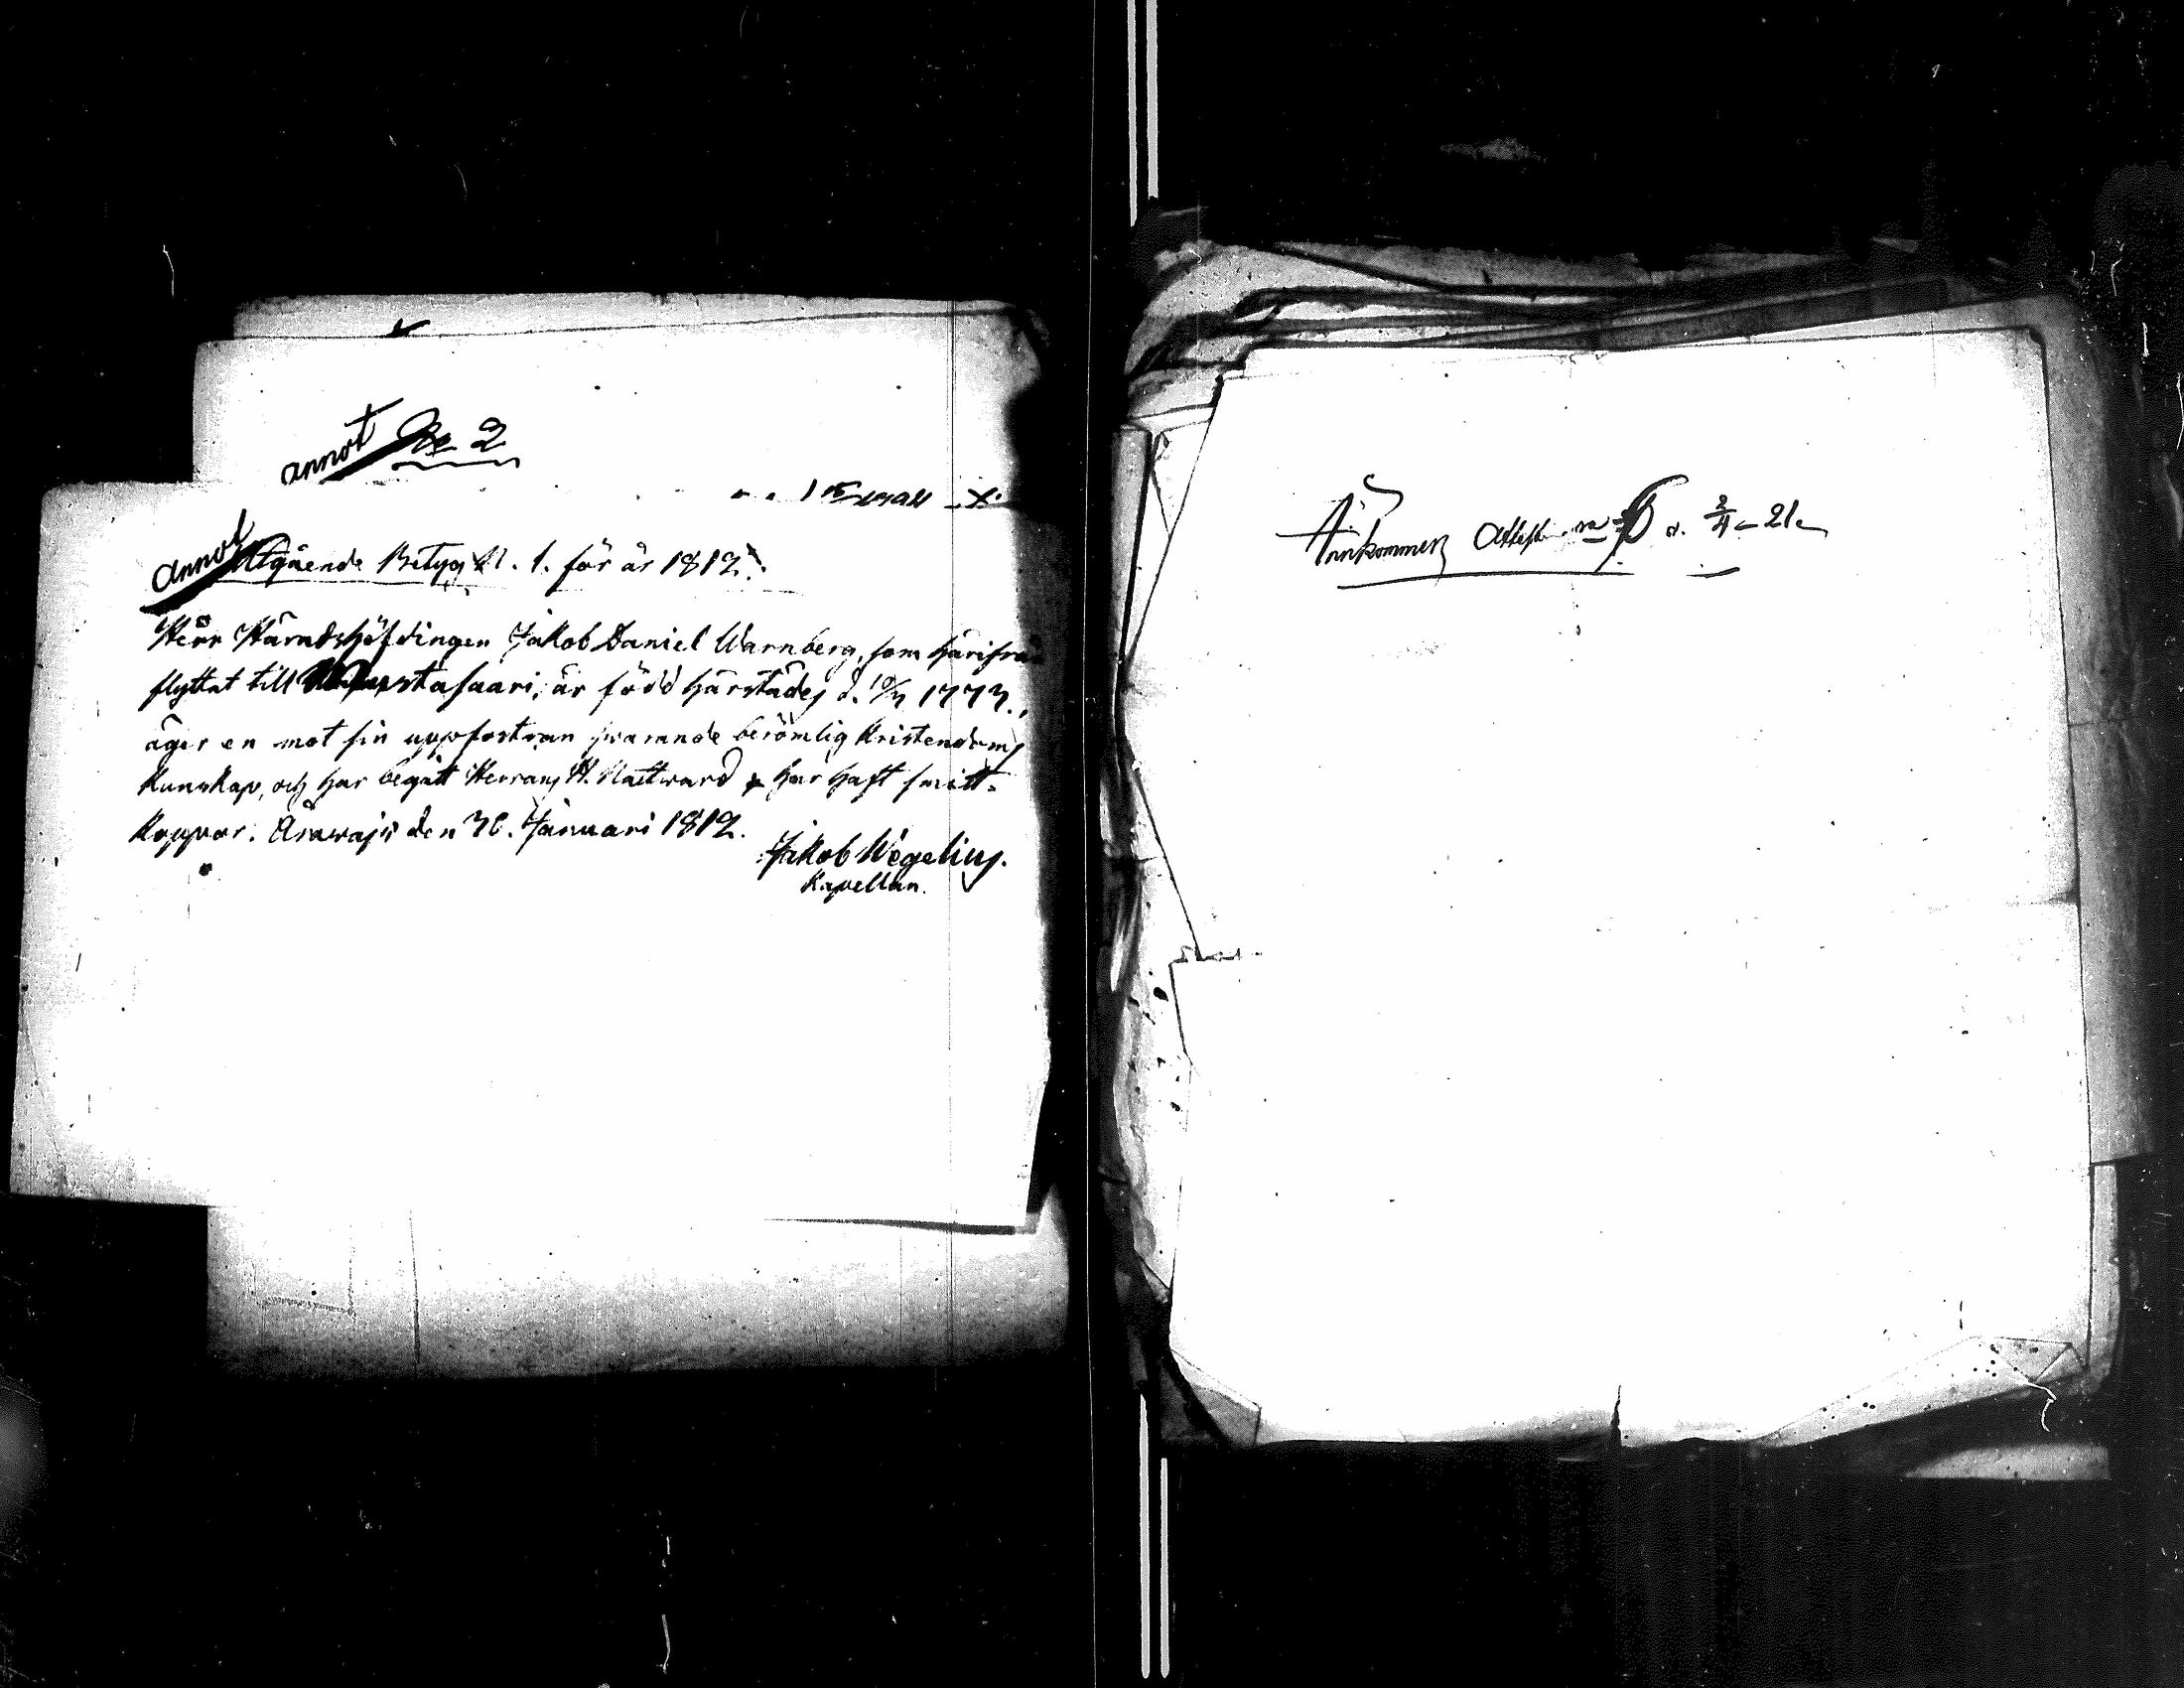 annot No 2
annot
Utgående Betyg N. 1. för år 1812.
Herr Häradshöfdingen Jakob Daniel Warnberg, som härifrån
flyttat till stasaari, är född härstädes d. 10/7 1773.,
äger en mot sin uppfostran swarande berömlig Kristendoms
Kunskap, och har begått Herrans H. Nattward & har haft smitt-
koppor. den 30. Januari 1812.
Jakob Wegelius.
Kapellan.
Ankommen Attest no 6 d. 3/4 - 21